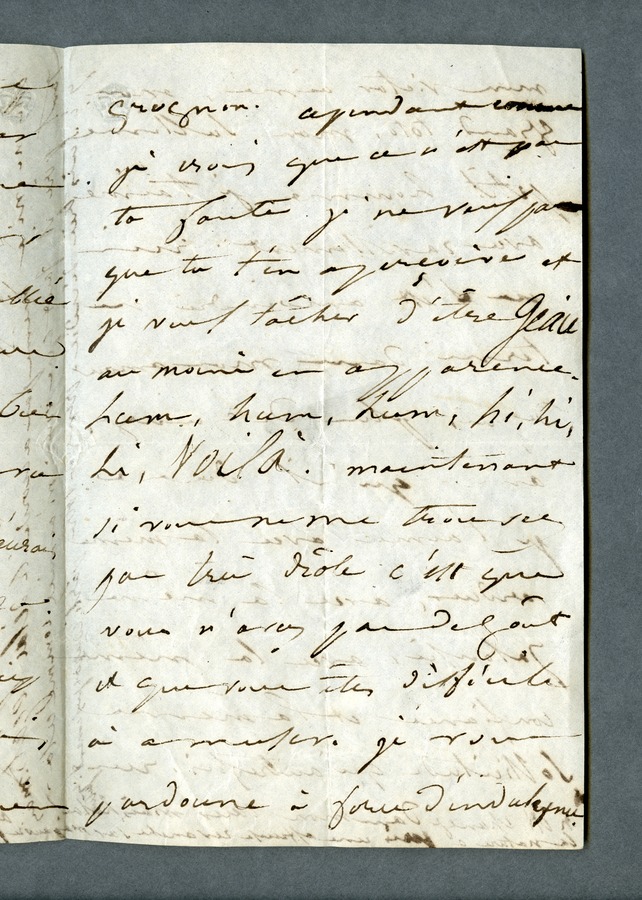 grognon. cependant comme
je crois que ce n'est pas
ta faute je ne veux pas
que tu t'en aperçoive et
je veux tâcher d'être Gaie
au moins en apparence.
hum, hum, hum, hi, hi,
hi, Voilà. maintenant
si vous ne me trouvez
pas très drôle c'est que
vous n'avez pas de goût
et que vous êtes difficile
à amuser. je vous
pardonne à force d'indulgence